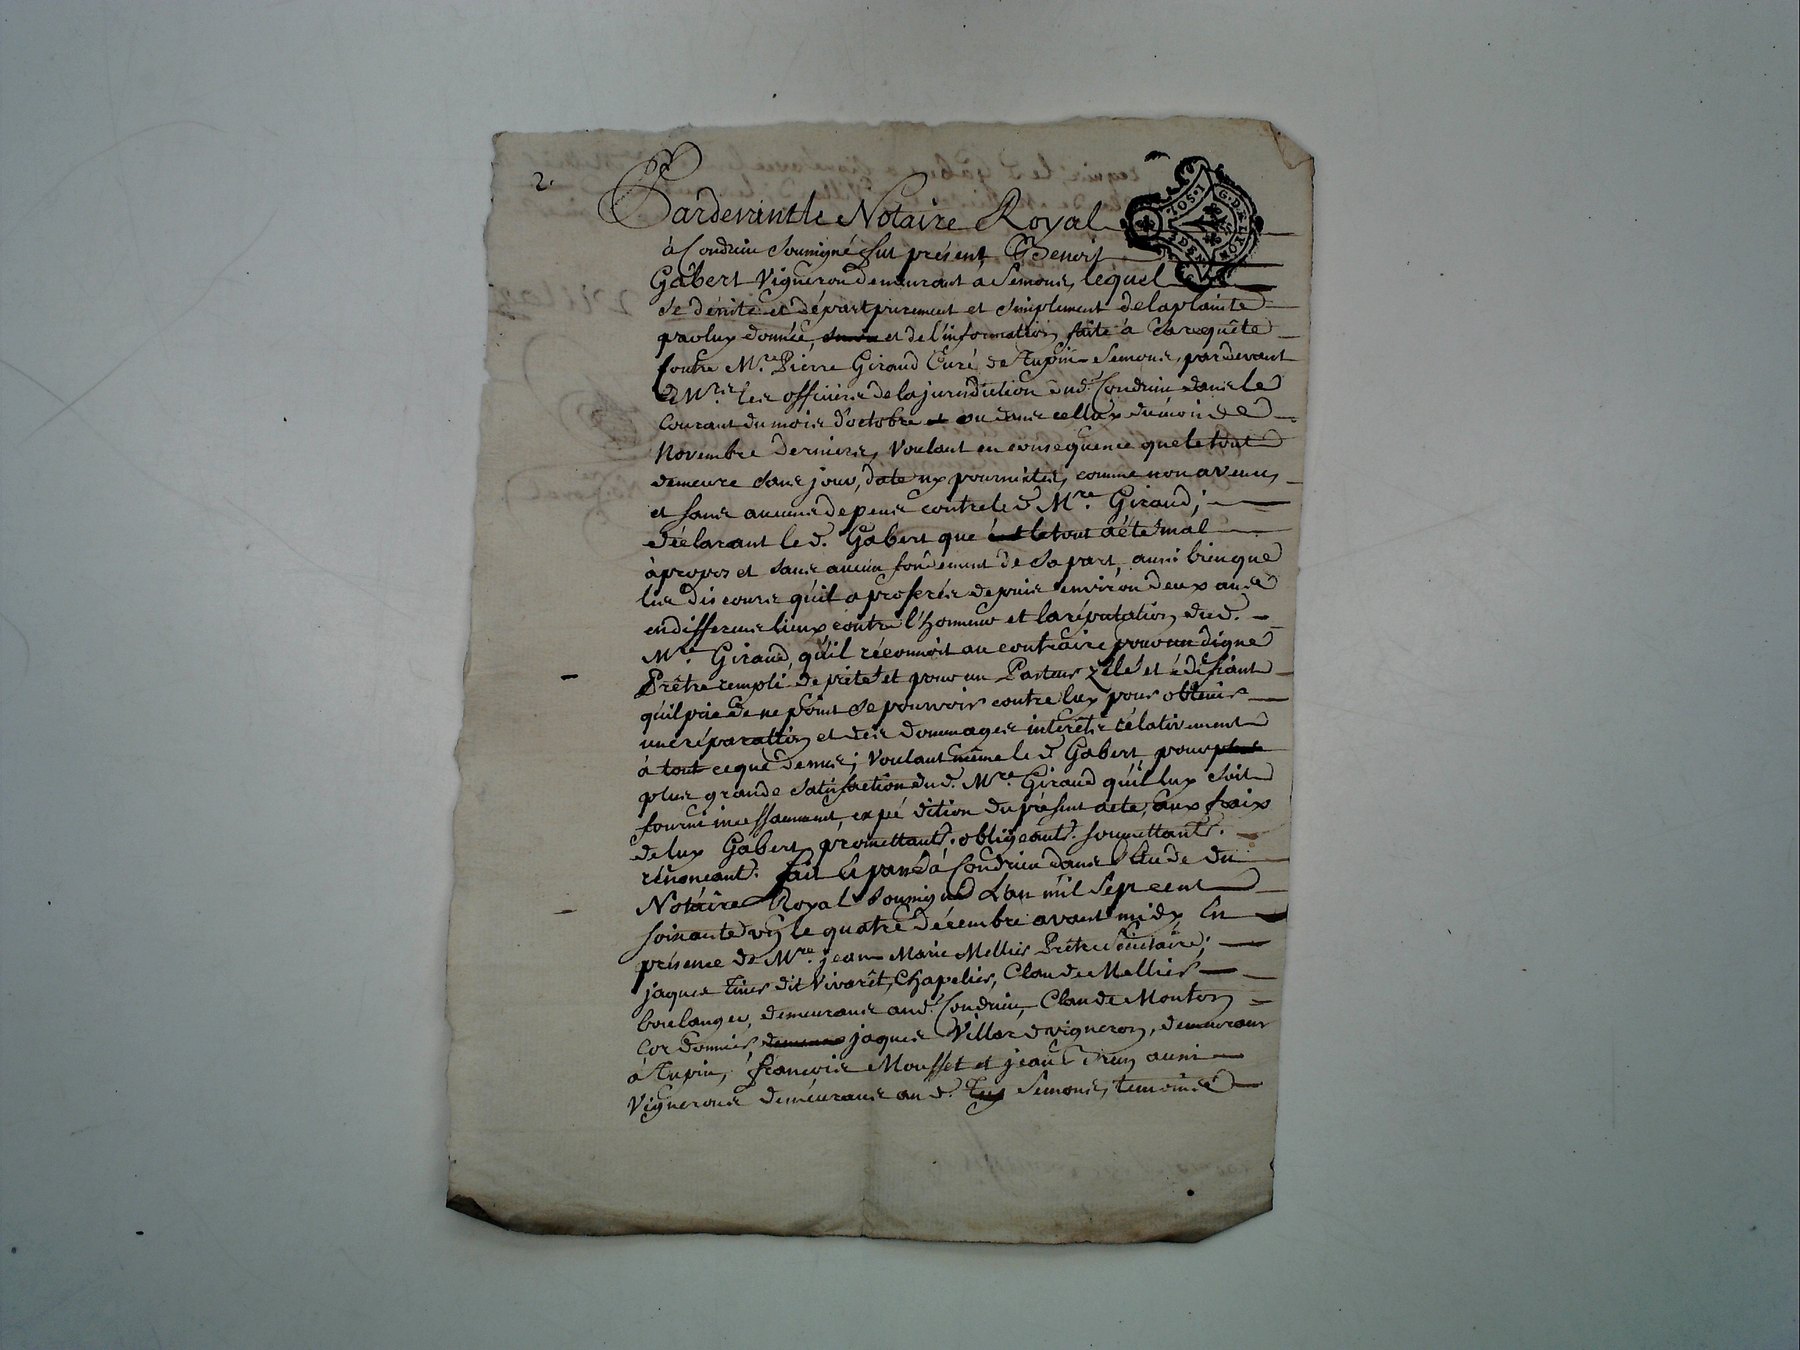 2.
Pardevant le Notaire Royal
à Condrieu soussigné fut présent Benoit
Gabert Vigneron demeurant à Semons, lequel
se désiste et départ purement et simplement de la plainte
par luy donnée, et de l'information faite à sa requête
Contre Mre. Pierre Giraud Curé de Tupin Semons, pardevant
Mrs. les officiers de la jurisdiction dud. Condrieu dans le
Courant du mois d'octobre ou dans celluy du mois de
Novembre derniers, Voulant en consequence que le tout
demeure sans jour, date ny poursuites, comme non avenu,
et sans aucuns depens contre le d. Mre. Giraud;
déclarant le d. Gabert que le tout a été mal
à propos et sans aucun fondement de sa part, aussi bien que
les discours qu'il a proferés depuis environ deux ans
en differens lieux contre l'honneur et la réputation dud.
Mre. Giraud, qu'il réconnoit au contraire pour un digne
Prêtre rempli de piété et pour un Pasteur zélé et édifiant
qu'il prie de ne point se pourvoir contre luy pour obtenir
une réparation et des dommages intérêts rélativement
à tout ce que dessus; Voulant même le d. Gabert, pour
plus grande satisfaction dud. Mre. Giraud qu'il luy soit
fourni incessamment, expédition du présent acte, aux fraix
de luy Gabert, promettant. obligeant. soumettant.
rénoncant. fait et passé à Condrieu dans l'étude du
Notaire Royal soussigné L'an mil sept cent
soixante le quatre décembre avant midy En
présence de Mre. jean Marie Mellier Prêtre
jaques dit Vivarêt, Chapelier, Claude Mellier
boulanger, demeurans aud. Condrieu, Claude Monton
Cordonnier, jaques Villard vigneron, demeurans
à Tupin, françois Mousset et jean aussi
Vignerons demeurans au d. Semons, temoins
TOS. I
G. DE LYON
2 S
DEN